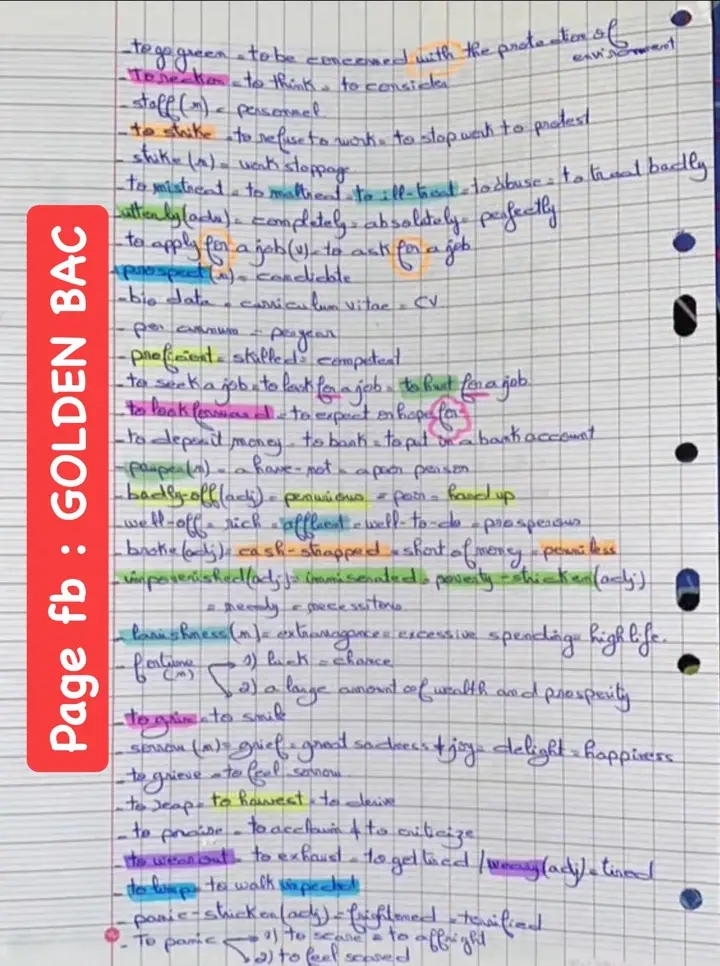 - to go green = to be concerned with the protection of environment
- To reckon = to think = to consider
- staff (n) = personnel
- to strike = to refuse to work = to stop work to protest
- strike (n) = work stoppage
- to mistreat = to maltreat = to ill-treat = to abuse = to treat badly
- utterly (adv) = completely = absolutely = perfectly
- to apply for a job (v) = to ask for a job
- prospect (n) = candidate
- bio data = curriculum vitae = CV
- per annum = per year
- proficient = skilled = competent
- to seek a job = to look for a job = to hunt for a job
- to look forward = to expect or hope for
- to deposit money = to bank = to put in a bank account
- pauper (n) = a have-not = a poor person
- badly-off (adj) = penurious = poor = hard up
well-off = rich = affluent = well-to-do = prosperous
- broke (adj) = cash-strapped = short of money = penniless
- impoverished (adj) = immiserated = poverty-stricken (adj)
= needy = necessitous
- lavishness (n) = extravagance = excessive spending = high life.
- fortune (n) → 1) luck = chance
→ 2) a large amount of wealth and prosperity
- to grin = to smile
- sorrow (n) = grief = great sadness ≠ joy = delight = happiness
- to grieve = to feel sorrow
- to reap = to harvest = to derive
- to praise = to acclaim ≠ to criticize
- to wear out = to exhaust = to get tired / weary (adj) = tired
- to limp = to walk impeded
- panic-stricken (adj) = frightened = terrified
- To panic → 1) to scare = to affright
→ 2) to feel scared
Page fb : GOLDEN BAC